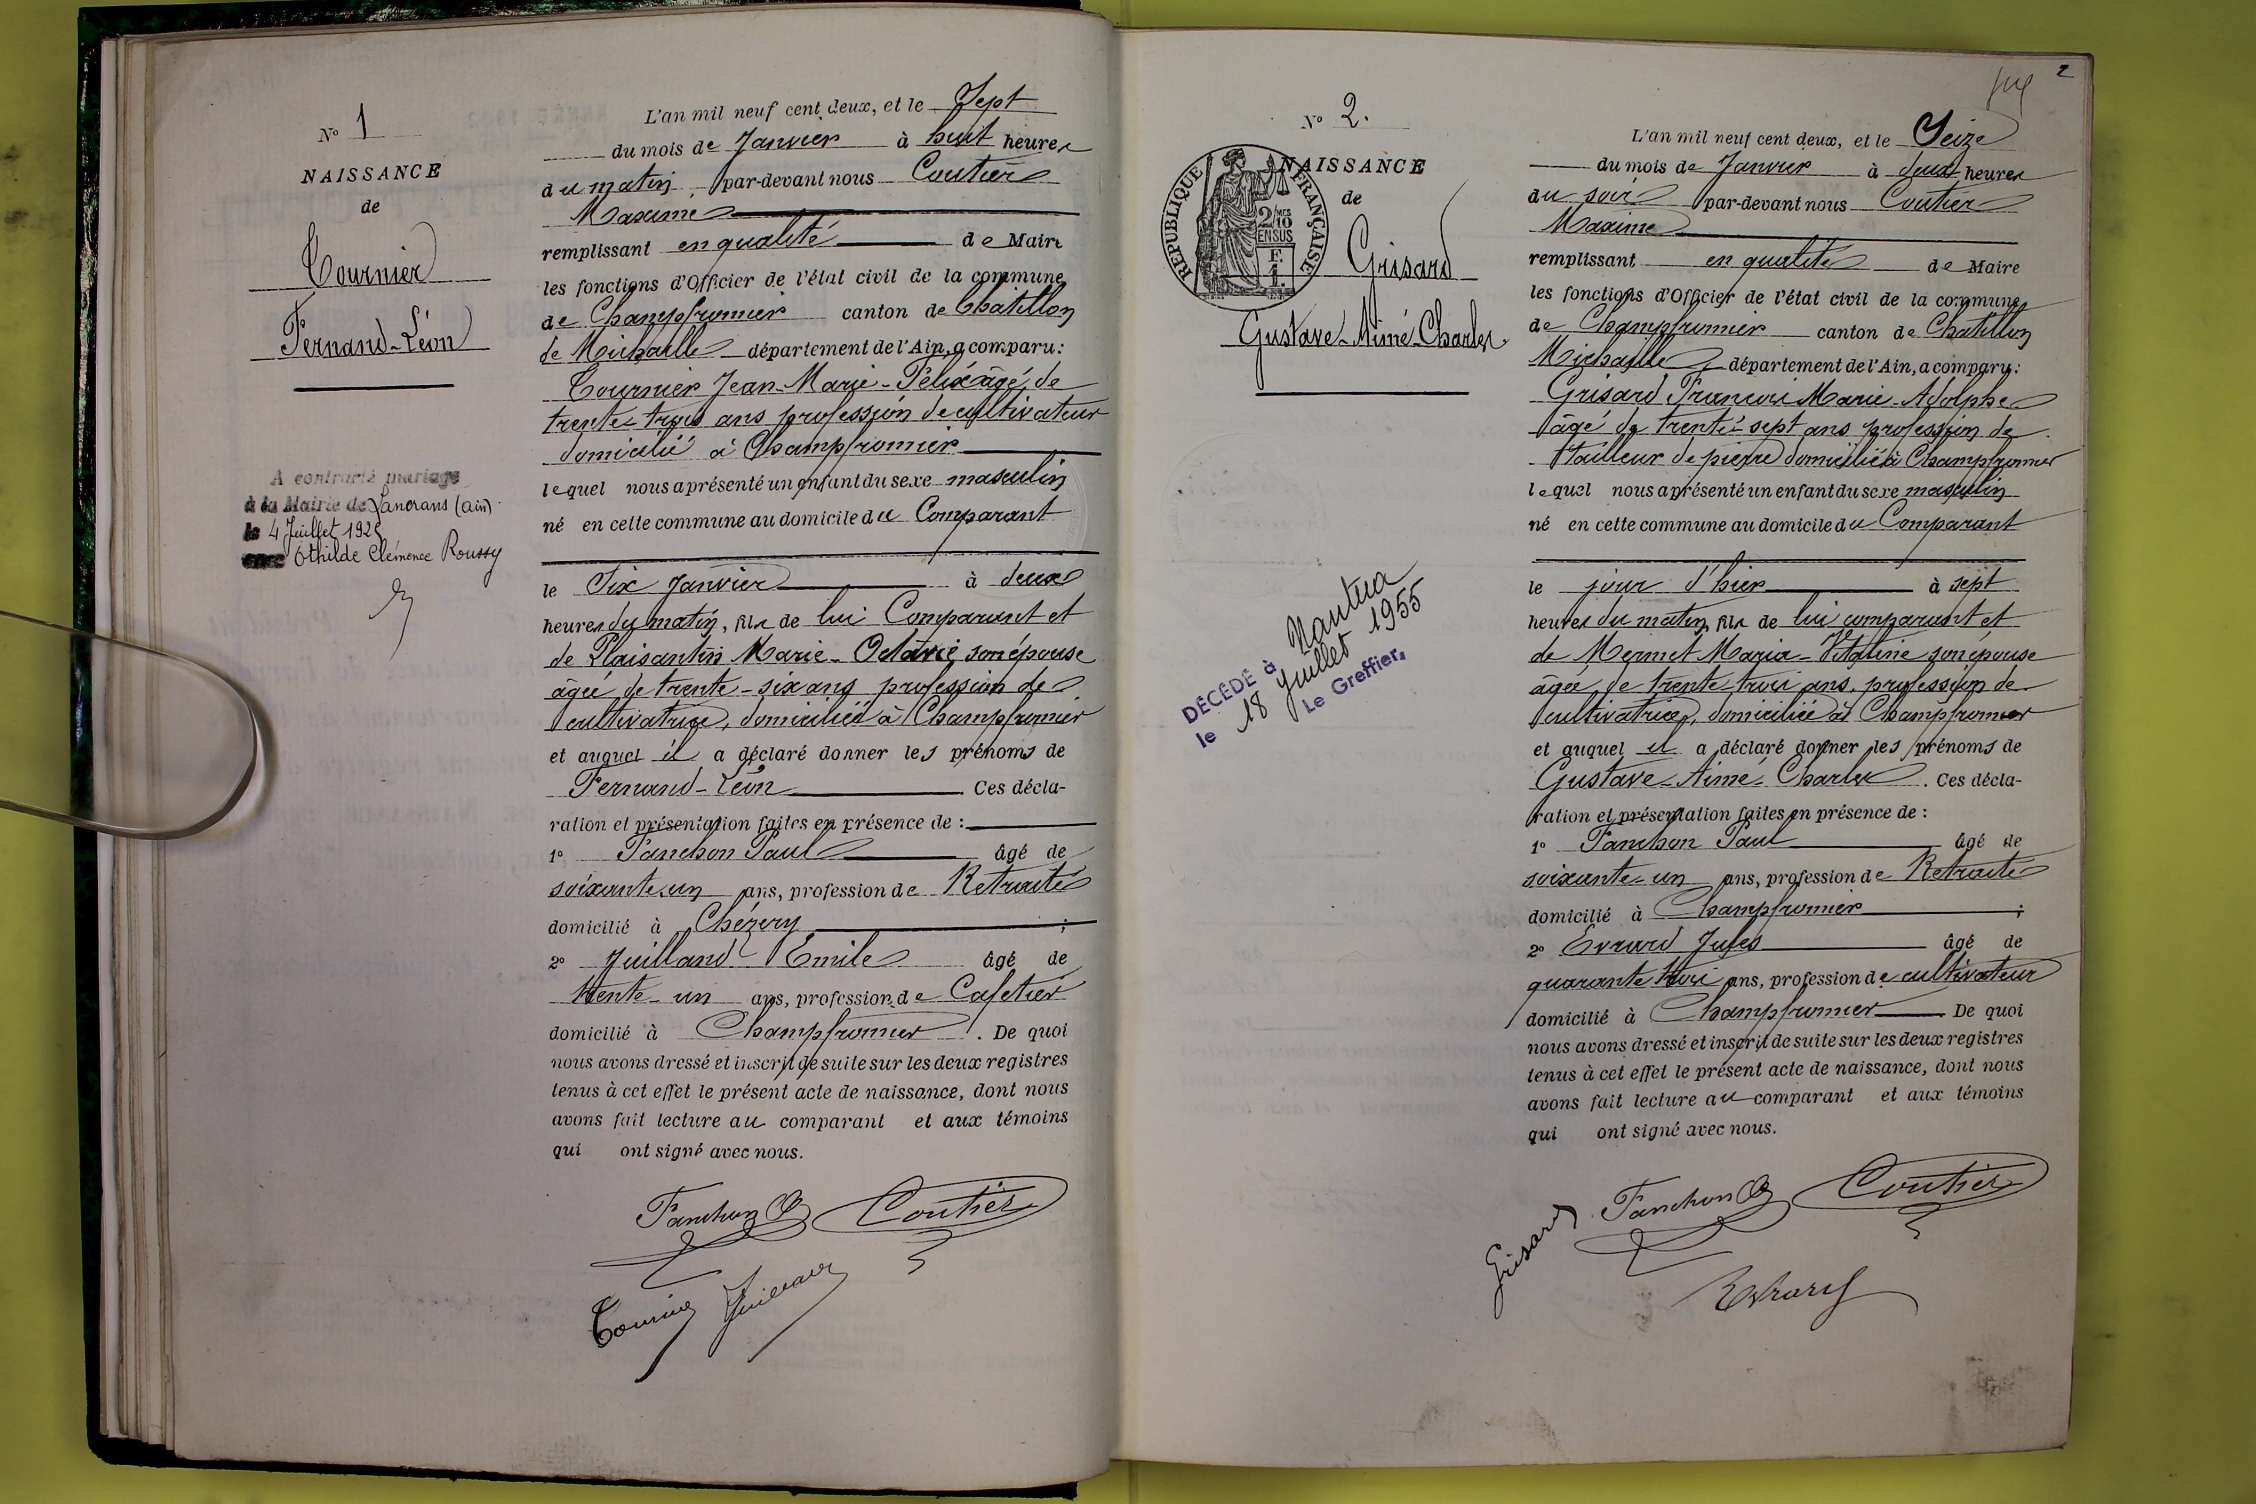 N° 1
NAISSANCE
de
Tournier
Fernand-Léon
A contracté mariage
à la Mairie de Lancrans (Ain)
le 4 Juillet 1925
avec Othilde Clémence Roussy
L'an mil neuf cent deux, et le Sept
du mois de Janvier à huit heures
du matin par-devant nous Coutier
Maxime
remplissant en qualité de Maire
les fonctions d'Officier de l'état civil de la commune
de Champfromier canton de Chatillon
de Michaille département de l'Ain, a comparu:
Tournier Jean-Marie-Félix âgé de
trente-trois ans profession de cultivateur
domicilié à Champfromier
lequel nous a présenté un enfant du sexe masculin
né en cette commune au domicile du Comparant
le Six Janvier à deux
heures du matin, fils de lui Comparant et
de Plaisantin Marie-Octavie, son épouse
âgée de trente-six ans profession de
cultivatrice, domiciliée à Champfromier
et auquel il a déclaré donner les prénoms de
Fernand-Léon Ces décla-
ration et présentation faites en présence de :
1° Fanchon Paul âgé de
soixante-un ans, profession de Retraité
domicilié à Chézery ;
2° Juilland Emile âgé de
trente-un ans, profession de Cafetier
domicilié à Champfromier. De quoi
nous avons dressé et inscrit de suite sur les deux registres
tenus à cet effet le présent acte de naissance, dont nous
avons fait lecture au comparant et aux témoins
qui ont signé avec nous.
Fanchon Coutier
Tournier Juilland
2
N° 2.
NAISSANCE
de
REPUBLIQUE FRANÇAISE
2/10 MES
EN SUS
F.
1.
Grisard
Gustave-Aimé-Charles
DÉCÉDÉ à Nantua
le 18 Juillet 1955
Le Greffier,
L'an mil neuf cent deux, et le Seize
du mois de Janvier à deux heures
du soir par-devant nous Coutier
Maxime
remplissant en qualité de Maire
les fonctions d'Officier de l'état civil de la commune
de Champfromier canton de Chatillon
Michaille département de l'Ain, a comparu:
Grisard François Marie-Adolphe
âgé de trente-sept ans profession de
tailleur de pierre domicilié à Champfromier
lequel nous a présenté un enfant du sexe masculin
né en cette commune au domicile du Comparant
le jour d'hier à sept
heures du matin, fils de lui comparant et
de Mermet Maria-Vitaline son épouse
âgée de trente-trois ans, profession de
cultivatrice, domiciliée à Champfromier
et auquel il a déclaré donner les prénoms de
Gustave-Aimé-Charles. Ces décla-
ration et présentation faites en présence de :
1° Fanchon Paul âgé de
soixante-un ans, profession de Retraité
domicilié à Champfromier ;
2° Evrard Jules âgé de
quarante trois ans, profession de cultivateur
domicilié à Champfromier De quoi
nous avons dressé et inscrit de suite sur les deux registres
tenus à cet effet le présent acte de naissance, dont nous
avons fait lecture au comparant et aux témoins
qui ont signé avec nous.
Grisard Fanchon Coutier
Evrard